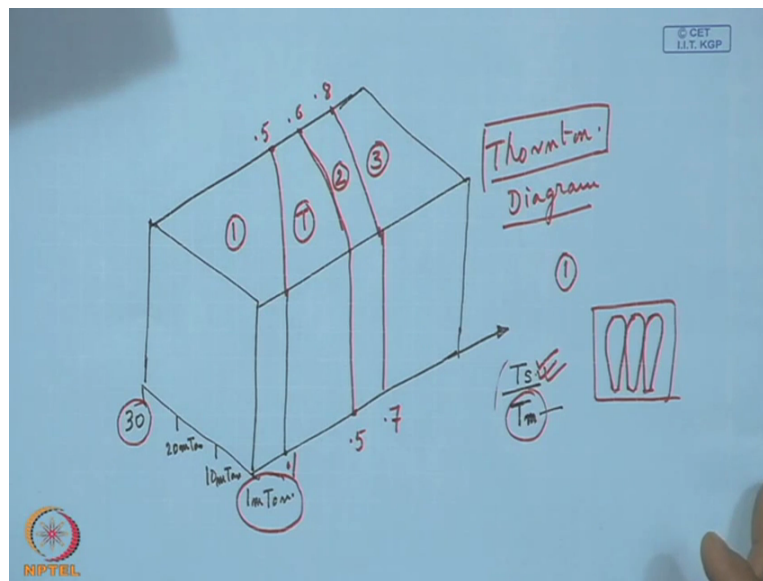 © CET
I.I.T. KGP
.5 .6 .8
Thornton.
Diagram
① T ② ③
①
Ts
Tm
30
20mTorr
10mTorr
1mTorr.
.1
.5
.7
NPTEL